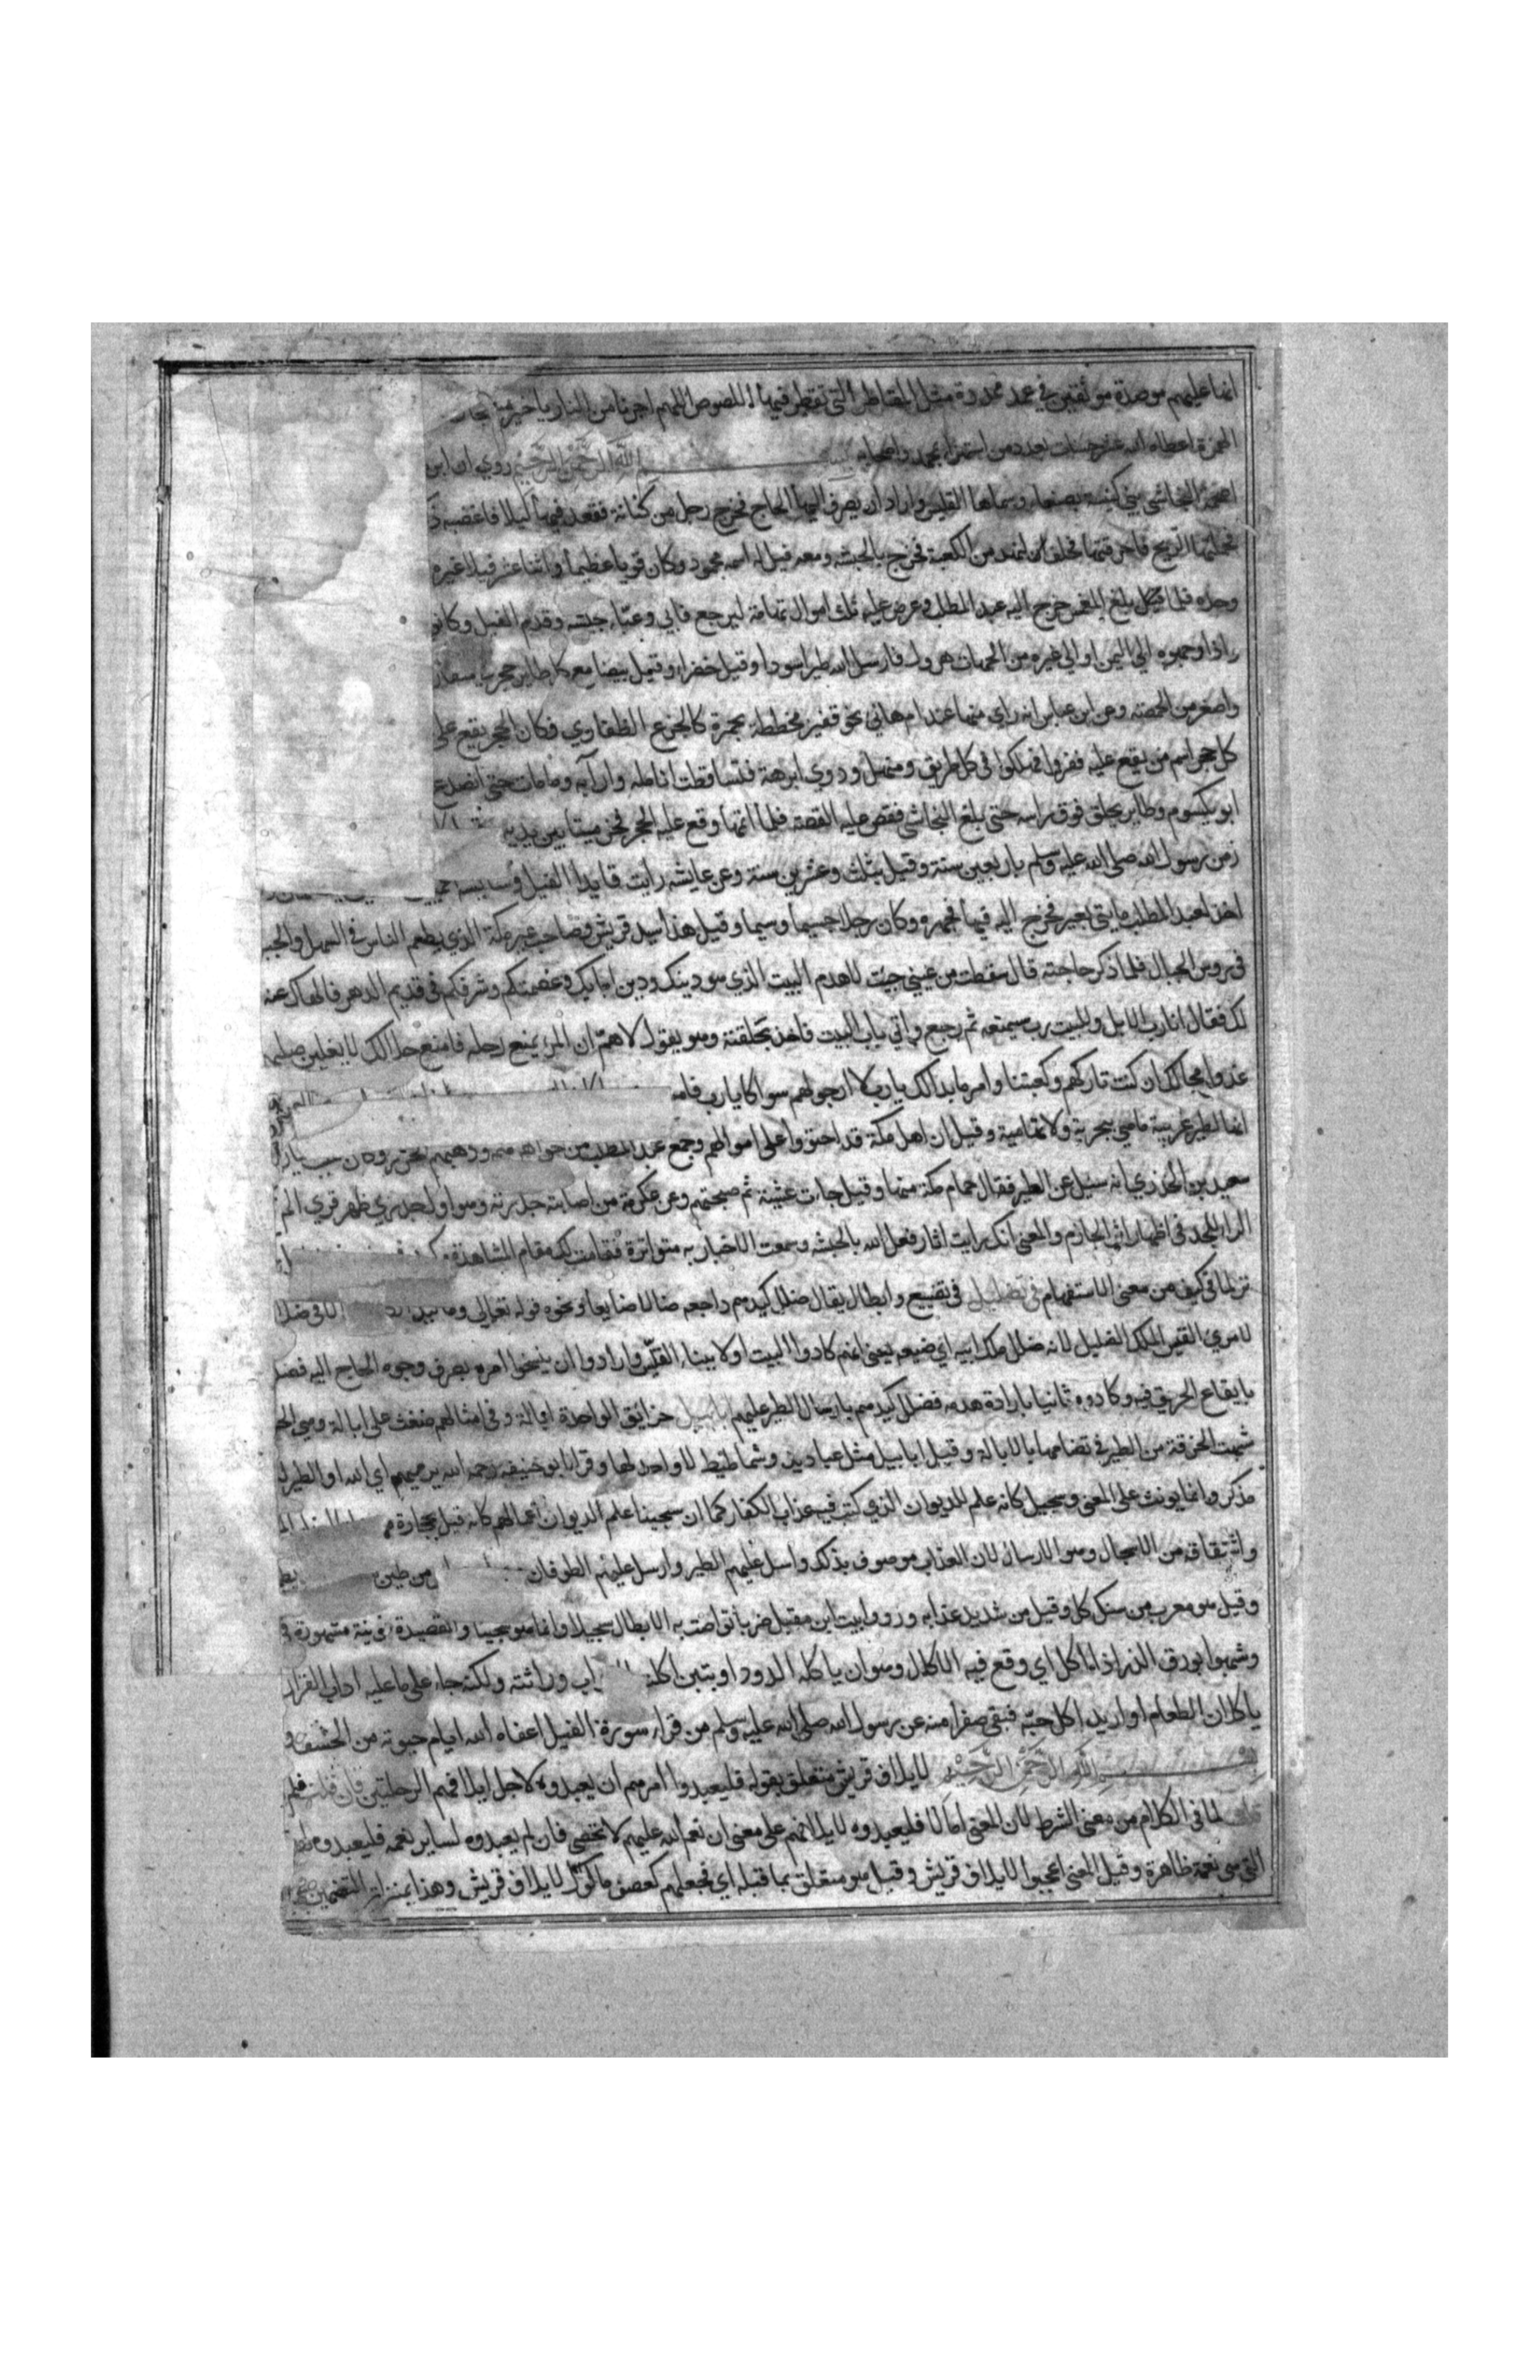 انها عليهم موصدة موثقين في عمد ممددة مثل المقاطر التي تقطر فيها اللصوص اللهم اجرنا من النار يا خير
الهمزة اعطاه الله عشر حسنات بعدد من استهزا بمحمد واصحابه بسم الله الرحمن الرحيم روي ان ابر
اصحمة النجاشي بني كنيسة بصنعاء وسماها القليس واراد ان يصرف اليها الحاج فخرج رجل من كنانة فقعد فيها ليلا فاغضبه
فحملتها الريح فاحرقتها فحلف ليهدمن الكعبة فخرج بالحبشه ومعه فيل له اسمه محمود وكان قويا عظيما واثنا عشر فيلا غيره
وحده فلما بلغ المغمس خرج اليه عبد المطلب وعرض عليه ثلث اموال تهامة ليرجع فابي وعبّاء جيشه وقدم الفيل وكانو
واذا وجهوه الي اليمن او الي غيره من الجهات هرول فارسل الله طيرا سودا وقيل خضرا وقيل بيضا مع كل طاير حجر
واصغر من الحمصه وعن ابن عباس انه راي منها عند ام هاني نحو قفيز مخططة بحمرة كالجزع الظفاري فكان الحجر يقع علي
كل حجر اسم من يقع عليه ففروا فهلكوا في كل طريق ومنهل ودوي ابرهة فتساقطت انامله وارابه وما مات حتي انصدع
ابو يكسوم وطاير يحلق فوق راسه حتى بلغ النجاشي فقص عليه القصة فلما اتمها وقع عليه الحجر فخر ميتا بين يديه
زمن رسول الله صلى الله عليه وسلم باربعين سنة وقيل بثلث وعشرين سنة وعن عايشه رايت قايد الفيل وسايسه
اخذ لعبد المطلب مايتي بعير فخرج اليه فيها فجهره وكان رجلا جسيما وسيما وقيل هذا سيد قريش وصاحب عير مكة الذي يطعم الناس في السهل والجبـ
في روس الجبال فلما ذكر حاجته قال سقطت من عيني جيت لاهدم البيت الذي هو دينك ودين ابايك وعصمتكم وشرفكم في قديم الدهر فالهاك عنه
لك فقال انا رب الابل وللبيت رب سيمنعه ثم رجع واتي باب البيت فاخذ بحلقته وهو يقول لا همّ ان المرء يمنع رحله فامنع حلالك لا يغلبن صليبهم
عدوا محالك ان كنت تاركهم وكعبتنا فامر ما بدالك يا رب لا ارجو لهم سواكا يا رب فامنـ
انها لطير غريبة ما هي ببحرية ولا تهامية وقيل ان اهل مكة قد احتووا على اموالهم وجمع عبد المطلب من جواهرهم وذهبهم
سعيد بن الخذري انه سئل عن الطير فقال حمام مكة منها وقيل جات عشية ثم صبحتهم وعن عكرمة من اصابته جدرته وهو اول جدري ظهر قري الم
الراء للجد في اظهار اثر الجازم والمعنى انك رايت اثار فعل الله بالحبشه وسمعت الاخبار به متواترة فقامت لك مقام المشاهدة
تر لما في كيف من معنى الاستفهام في تضليل في تضييع وابطال يقال ضلل كيدهم اذا جعله ضالا ضايعا ونحوه قوله تعالي وما كيد الا في ضلا
لامري القيس الملك الضليل لانه ضلل ملك ابيه اي ضيعه يعني انهم كادوا البيت اولا ببناء القلّيس وارادوا ان ينسخوا امره بصرف وجوه الحاج اليه فضلـ
بايقاع الحريق فيه وكادوه ثانيا بارادة هدمه فضلل كيدهم بارسال الطير عليهم ابابيل حزايق الواحدة ابالة وفي امثالهم ضغث على ابالة وهي الحز
شبهت الحزقة من الطير في تضامها بالابالة وقيل ابابيل مثل عباديد وشماطيط لا واحد لها وقرا ابو حنيفه رحمه الله يرميهم اي الله او الطير
مذكر وانما يونث على المعنى وسجيل كانه علم للديوان الذي كتب فيه عذاب الكفار كما ان سجينا علم الديوان اعمالهم كانه قيل بحجارة
واشتقاقه من الاسجال وهو الارسال لان العذاب موصوف بذلك وارسل عليهم الطير وارسل عليهم الطوفان من طين
وقيل هو معرب من سنك كل وقيل من شديد عذابه ورووا بيت ابن مقبل ضربا تواصت به الابطال سجيلا وانما هو سجينا والقصيدة نونية مشهورة
وشبهوا بورق الزرع اذا اكل اي وقع فيه الاكال وهو ان ياكله الدود او بتبن اكلته الدواب وراثته ولكنه جاء على ما عليه اداب القران
ياكلان الطعام او اريد اكل حبّه فبقي صفرا منه عن رسول الله صلى الله عليه وسلم من قراء سورة الفيل اعفاه الله ايام حيوته من الخسف
بسم الله الرحمن الرحيم لايلاف قريش متعلق بقوله فليعبدوا امرهم ان يعبدوه لاجل ايلافهم الرحلتين فان قلت فلم
قلت لما في الكلام من معنى الشرط لان المعنى اما لا فليعبدوه لايلافهم على معنى ان نعم الله عليهم لا تحصى فان لم يعبدوه لساير نعمه فليعبدوه
التي هي نعمة ظاهرة وقيل المعنى اعجبوا لايلاف قريش وقيل هو متعلق بما قبله اي فجعلهم كعصف ماكول لايلاف قريش وهذا بمنزلة التضمين